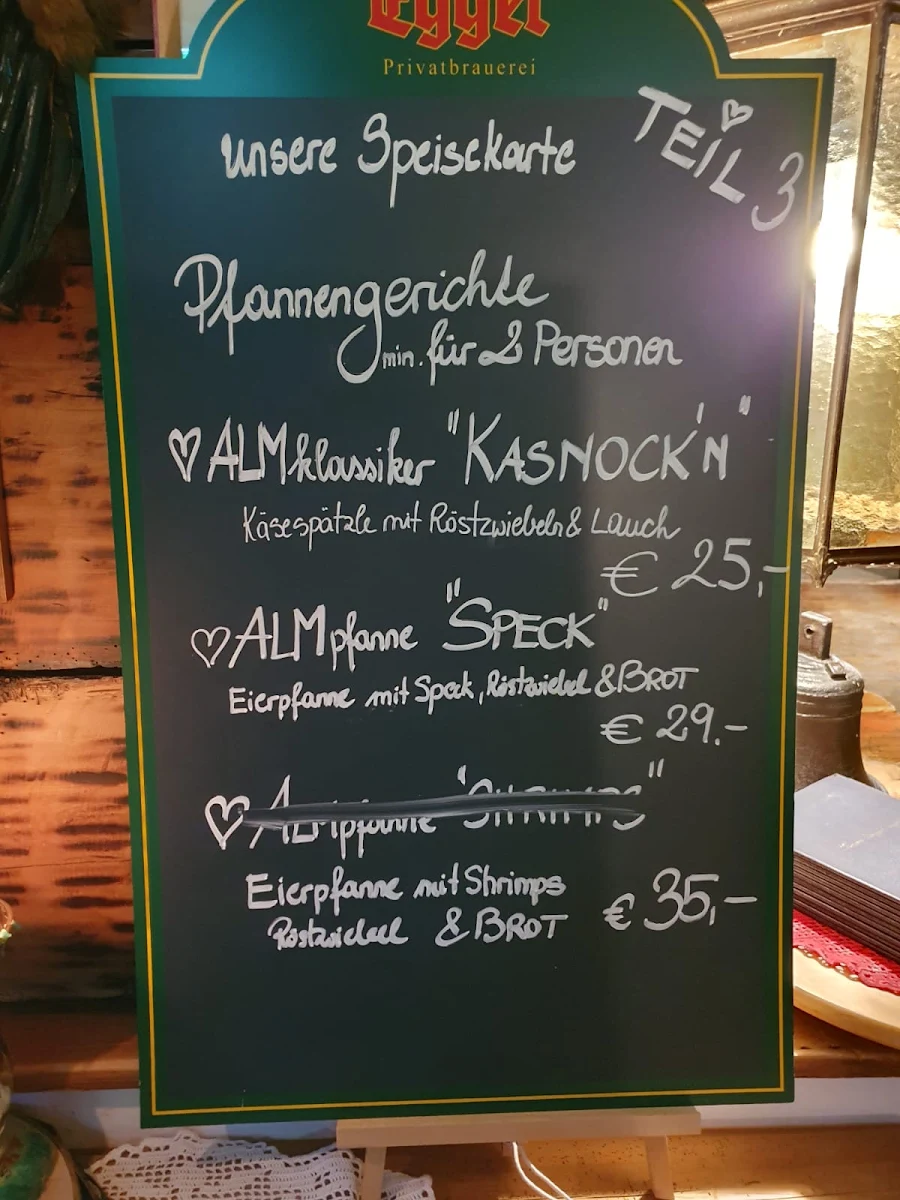 Egger
Privatbrauerei
TEIL 3
unsere Speisekarte
Pfannengerichte
min. für 2 Personen
ALMklassiker "KASNOCK'N"
Käsespätzle mit Röstzwiebeln & Lauch
€ 25,-
ALMpfanne "SPECK"
Eierpfanne mit Speck, Röstzwiebel & BROT
€ 29.-
ALMpfanne "SHRIMPS"
Eierpfanne mit Shrimps
Röstzwiebel & BROT € 35,-